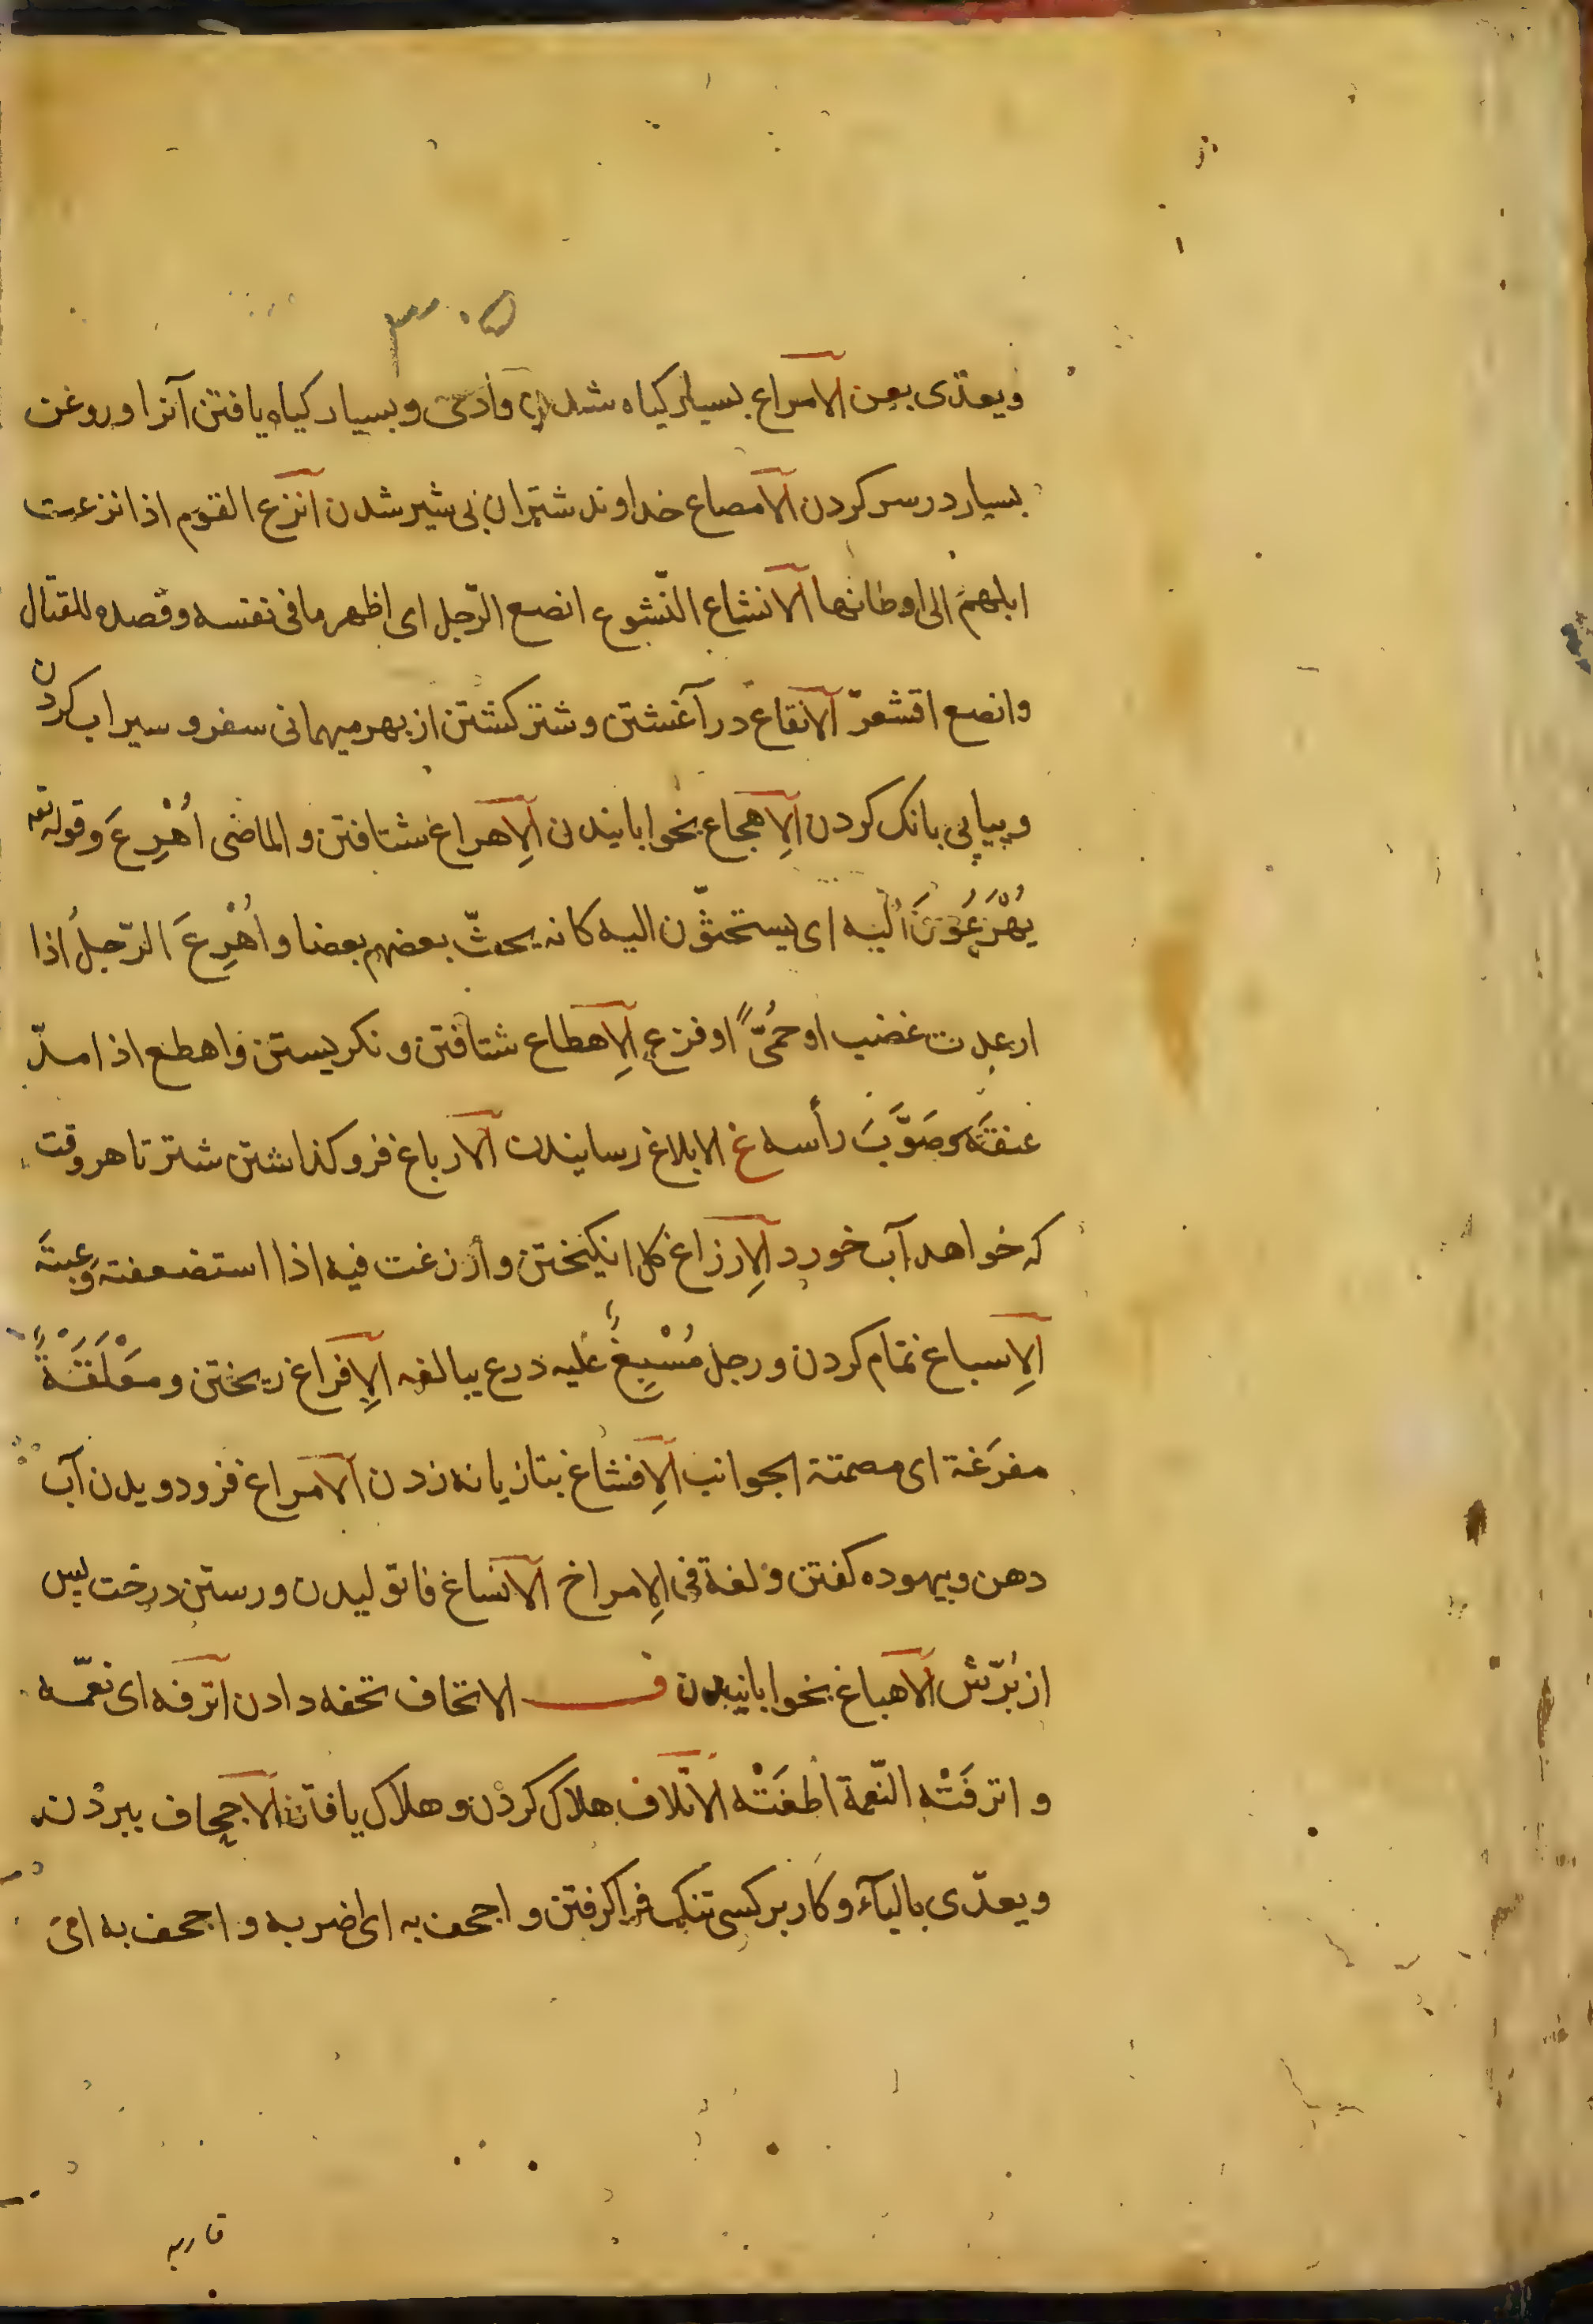 ويعدّى بعن الامراع بسيار كياه شدن وادى وبسيار كياه يافتن آنرا وروغن
بسيار در سر كردن الامصاع خداوند شتران بى شير شدن انزع القوم اذا نزعت
ابلهم الى اوطانها الانشاع النّشوع انصع الرّجل اى اظهر ما فى نفسه وقصده للقتال
وانصع اقشعرّ الانقاع در آغشتن وشتر كشتن از بهر ميهمانى سفر و سيراب كردن
وپياپى بانك كردن الاِهجاع بخوابانيدن الاِهراع شتافتن و الماضى اُهْرِعَ وقوله تعه
يُهْرَعُوْنَ اليه اى يستحثّون اليه كانه يحثّ بعضهم بعضا و اُهْرِعَ الرّجلُ اذا
ارعدت غضب او حُمّىً او فزع الاِهطاع شتافتن و نكريستن واهطع اذا مدّ
عنقَه وصَوَّبَ رأسه غ الابلاغ رسانيدن الارباغ فرو كذاشتن شتر تا هر وقت
كه خواهد آب خورد الاِرزاغ كل انكيختن وأرزغت فيه اذا استضعفته وعبتَه
الاِسباغ تمام كردن ورجل مُسْبِغٌ عليه درع سابغه الاِفراغ ريختن و مَعْلَقَةٌ
مفرَغة اى مصمتة الجوانب الاِفشاغ بتازيانه زدن الامراغ فرود ويدن آب
دهن وبيهوده كفتن و لغة فى الاِمراخ الانساغ فاتوليدن ورستن درخت پس
از بُرّش الاهباغ بخوابانيدن ف الاتحاف تحفه دادن اترفه اى نعّمه
و اترفَتْه النّعمة اطغَتْه الاتلاف هلاك كردن و هلاك يافتن الاجحاف ببردن
ويعدّى بالبآء و كار بر كسى تنك فراكرفتن و اجحف به اى اضر به و اجحف به اى
قاربه